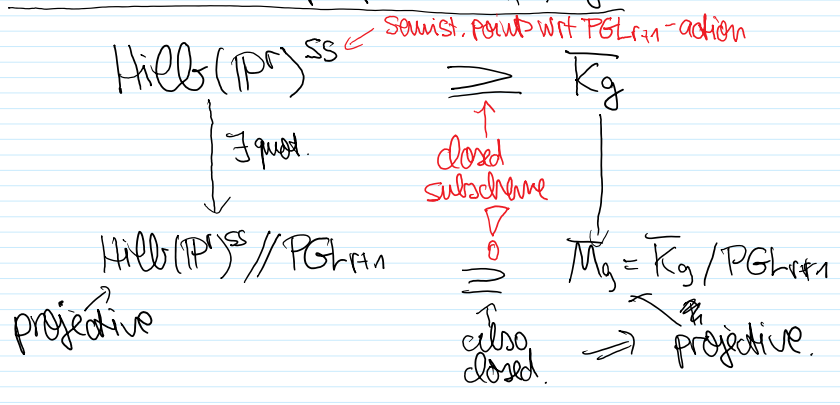 semist. points wrt PGLr+1-action
Hilb(Pʳ)ˢˢ ⊇ K̅g
∃ quot.
closed
subscheme
!
Hilb(Pʳ)ˢˢ // PGLr+1 ⊇ M̅g = K̅g / PGLr+1
projective
also
closed. ⟹ projective.